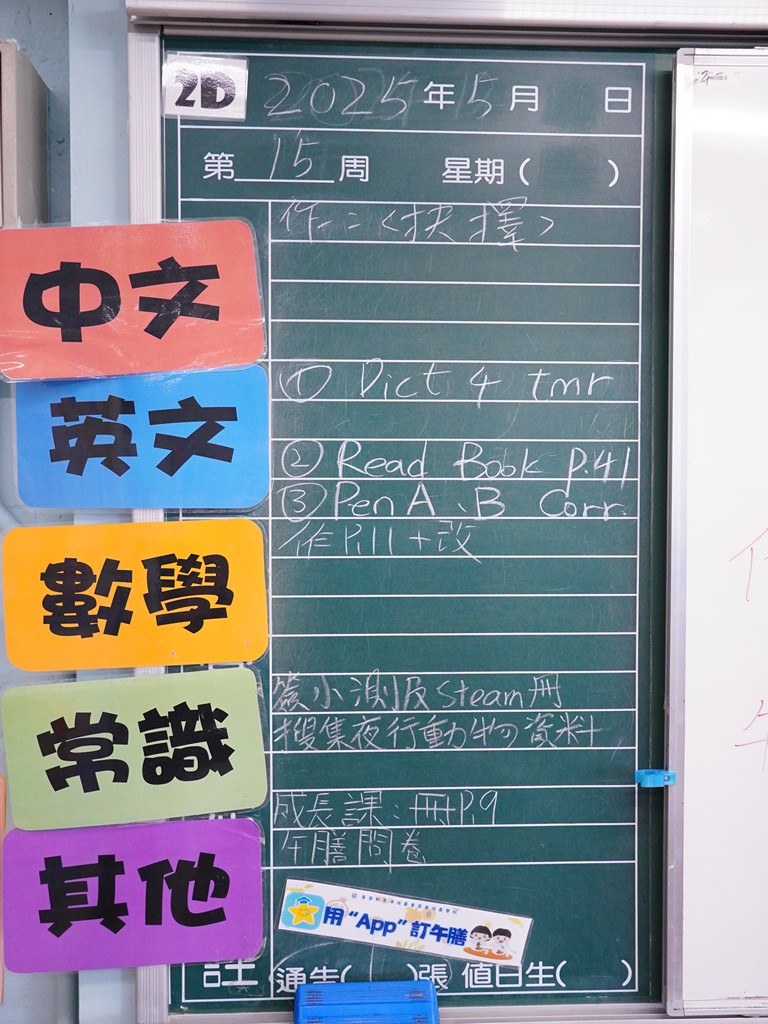 2D 2025年5月 日
第15周 星期( )
中文
作二:<抉擇>
英文
① Dict 4 tmr
② Read Book P.41
③ Pen A、B Corr.
數學
作P.11+改
常識
簽小測及Steam冊
搜集夜行動物資料
其他
成長課:冊P.9
午膳問卷
用“App”訂午膳
註 通告( )張 值日生( )